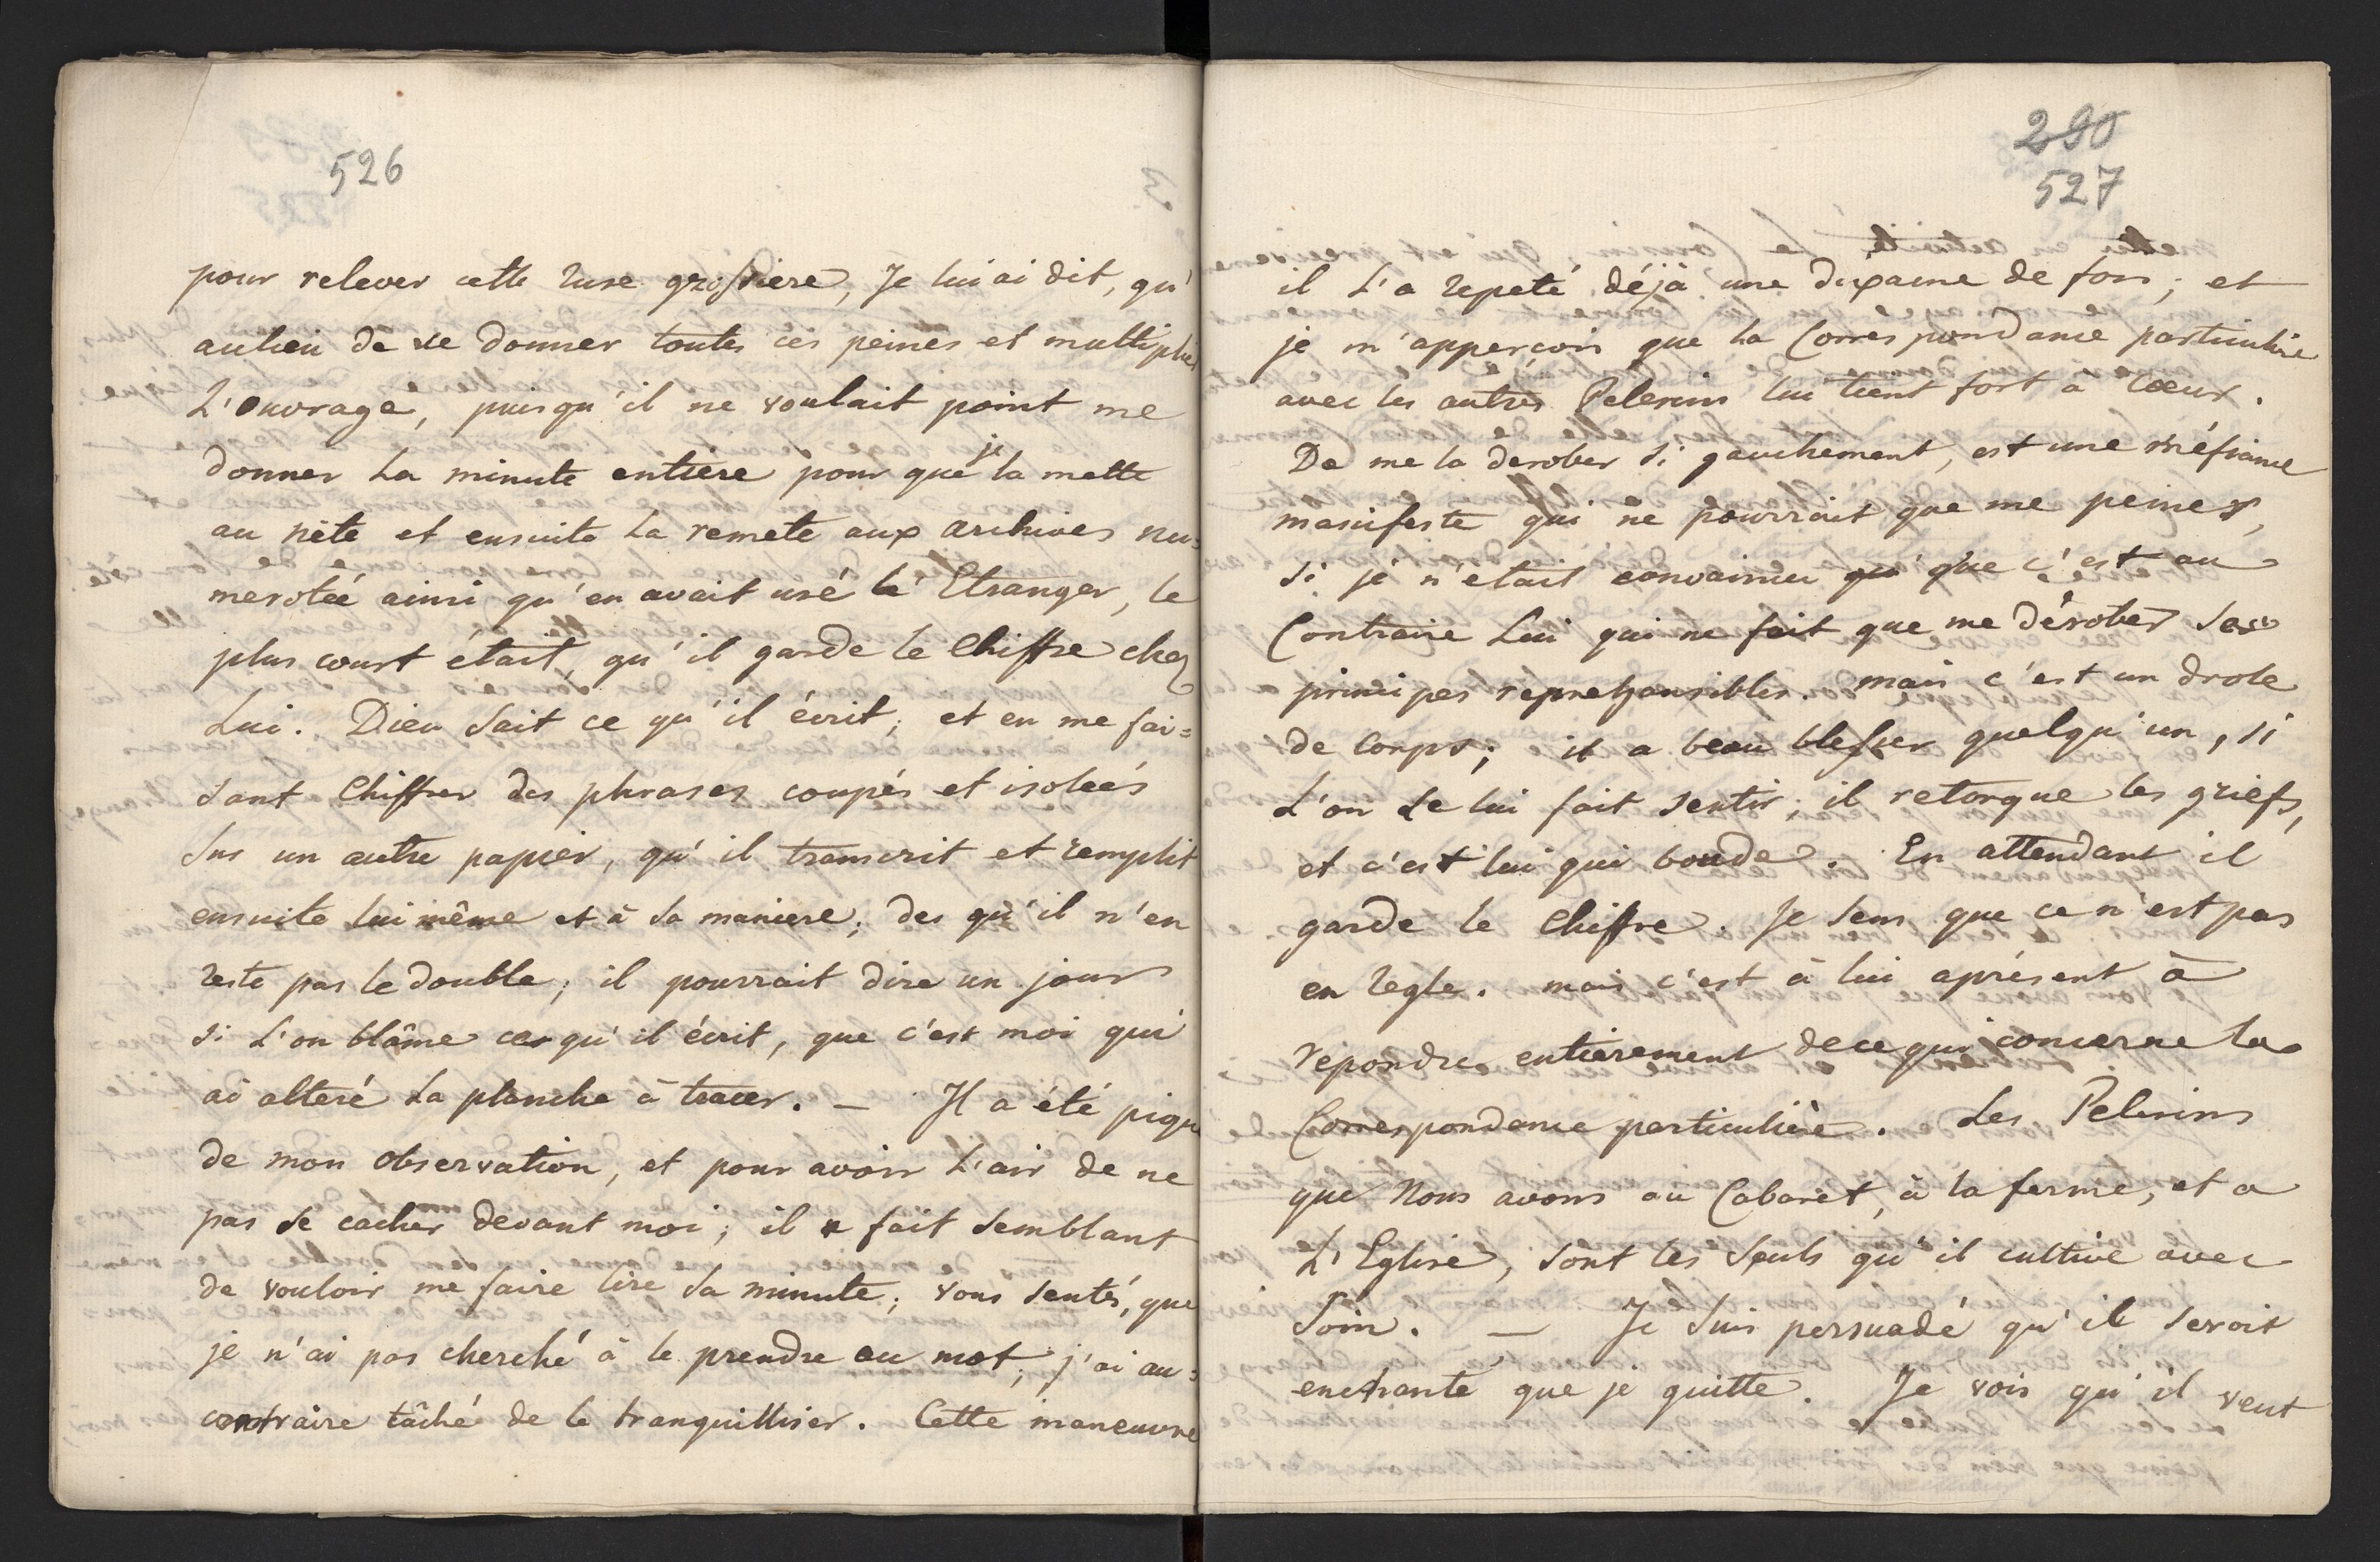 526
pour relever cette ruse grossiere, Je lui ai dit, qu'
aulieu de se donner toutes ces peines et multiplier
L'ouvrage, puisqu'il ne voulait point me
donner La minute entiere pour que je la mette
au nète et ensuite La remete aux archives nu=
merotée ainsi qu'en avait usé L'Etranger, le
plus court était, qu'il garde le Chiffre chez
Lui. Dieu Sait ce qu'il écrit; et en me fai=
sant Chiffrer des phrases coupés et isoleés
Sur un autre papier, qu'il transcrit et remplit
ensuite lui même et à sa maniere; des qu'il n'en
reste pas le double; il pourrait dire un jour
Si L'on blâme ce qu'il écrit, que c'est moi qui
ai alteré La planche à tracer. — Il a été piqué
de mon observation, et pour avoir L'air de ne
pas se cacher devant moi; il a fait semblant
de vouloir me faire lire sa minute; vous sentés, que
je n'ai pas cherché à le prendre au mot; j'ai au=
contraire tâché de le tranquilliser. Cette maneuvre
290
527
il L'a repeté déjà une dixaine de fois; et
je m'apperçois que La Correspondance particuliere
avec les autres Pelerins lui tient fort à Cœur.
De me la derober si gauchement, est une méfiance
manifeste qui ne pourrait que me peiner,
Si je n'était convaincu que c'est au
Contraire Lui qui ne fait que me dérober Ses
principes reprehansibles. mais c'est un drole
de Corps; il a beau blesser quelqu'un, si
L'on le lui fait sentir; il retorque les griefs,
et c'est lui qui boude. En attendant il
garde le Chiffre. Je sens que ce n'est pas
en regle. mais c'est à lui aprésent à
repondre entierement de ce qui concerne la
Correspondance particulière. Les Pelerins
que Nous avons au Cabaret, à la ferme, et a
L'Eglise, sont les seuls qu'il cultive avec
Soin. — Je suis persuadé qu'il seroit
enchanté que je quitte. Je vois qu'il veut